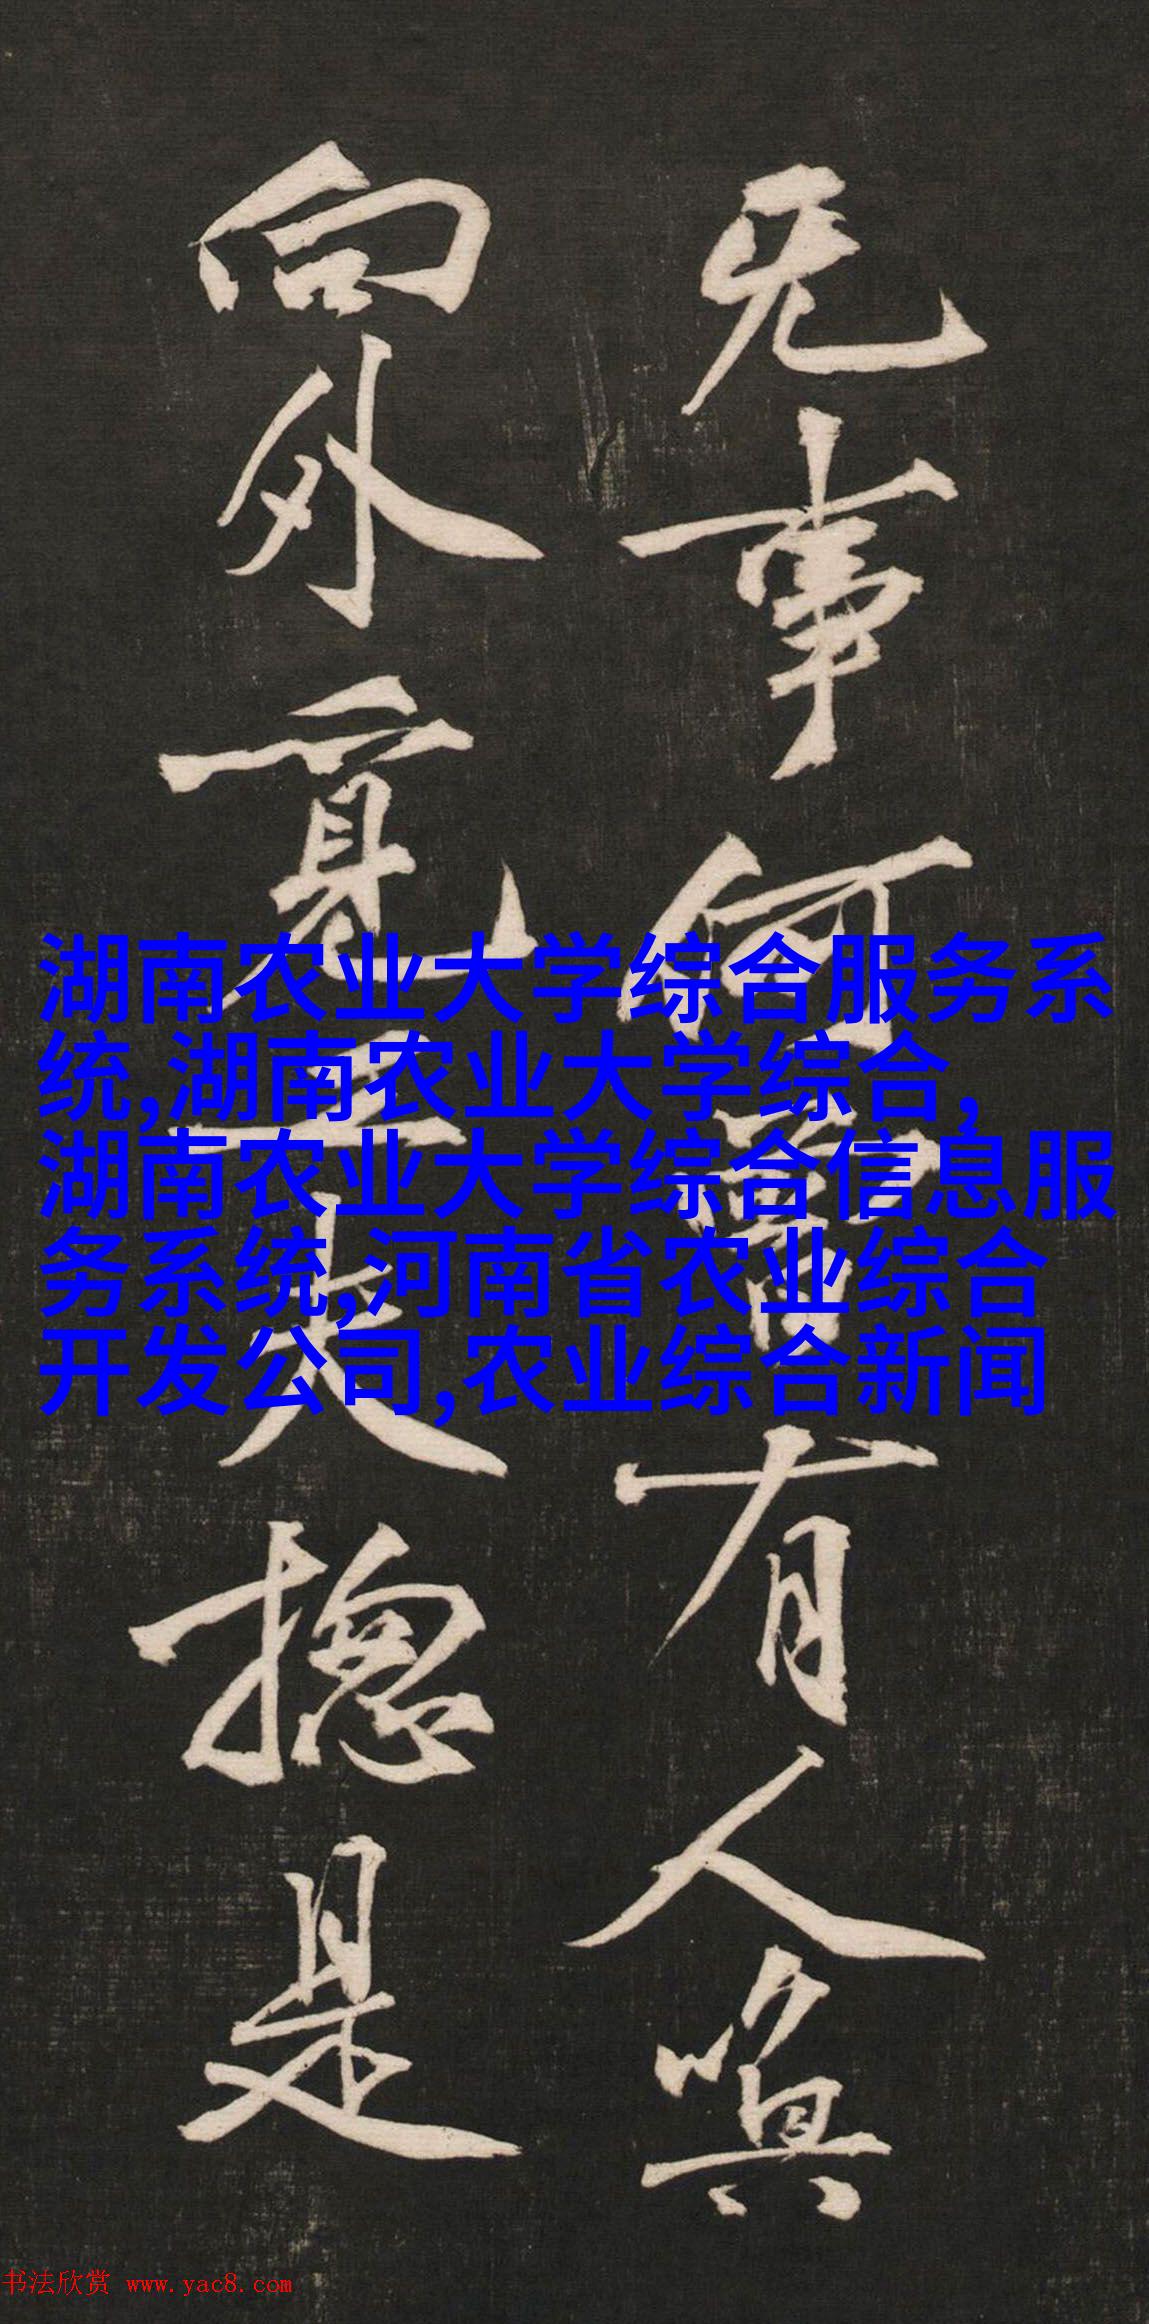 旡事何曾有人
向外覓工夫揔是
湖南农业大学综合服务系
统,湖南农业大学综合,
湖南农业大学综合信息服
务系统,河南省农业综合
开发公司,农业综合新闻
书法欣赏 www.yac8.com